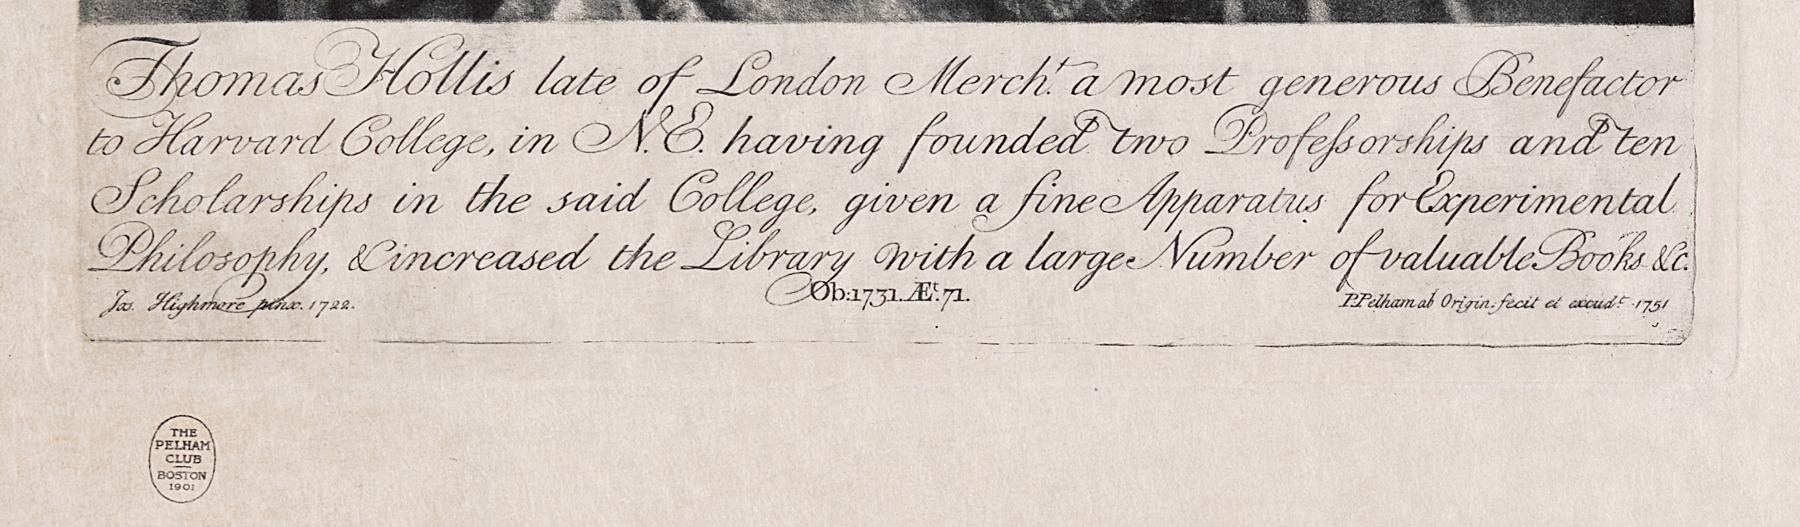 Thomas Hollis late of London Merch.t a most generous Benefactor
to Harvard College, in N.E. having founded two Profeſsorships and ten
Scholarships in the said College, given a fine Apparatus for Experimental
Philosophy, & increased the Library with a large Number of valuable Books &c.
Jos. Highmore pinx. 1722.
Ob: 1731. Æt. 71.
P. Pelham ab Origin. fecit et excud.t 1751
THE
PELHAM
CLUB
BOSTON
1901